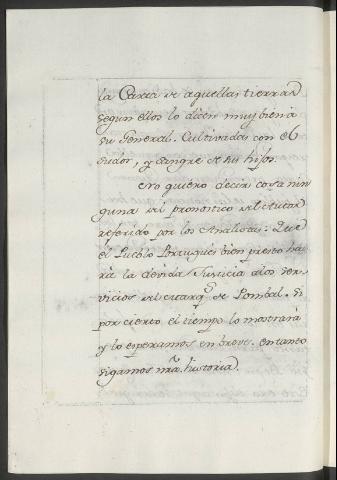 la Carta de aquellas tierras
segun ellos lo dicen muy bien à
su General. Cultivadas con el
sudor, y sangre de sus hijos.
No quiero decir cosa nin
guna del pronostico del Autor
referido por los Analistas: Que
el Pueblo Portugués bien presto ha
rà la devida Justicia alos Ser
vicios del Marq.s de Pombal. Si
por cierto el tiempo lo mostrarà
y lo esperamos en breve. entanto
sigamos nr̃a historia.